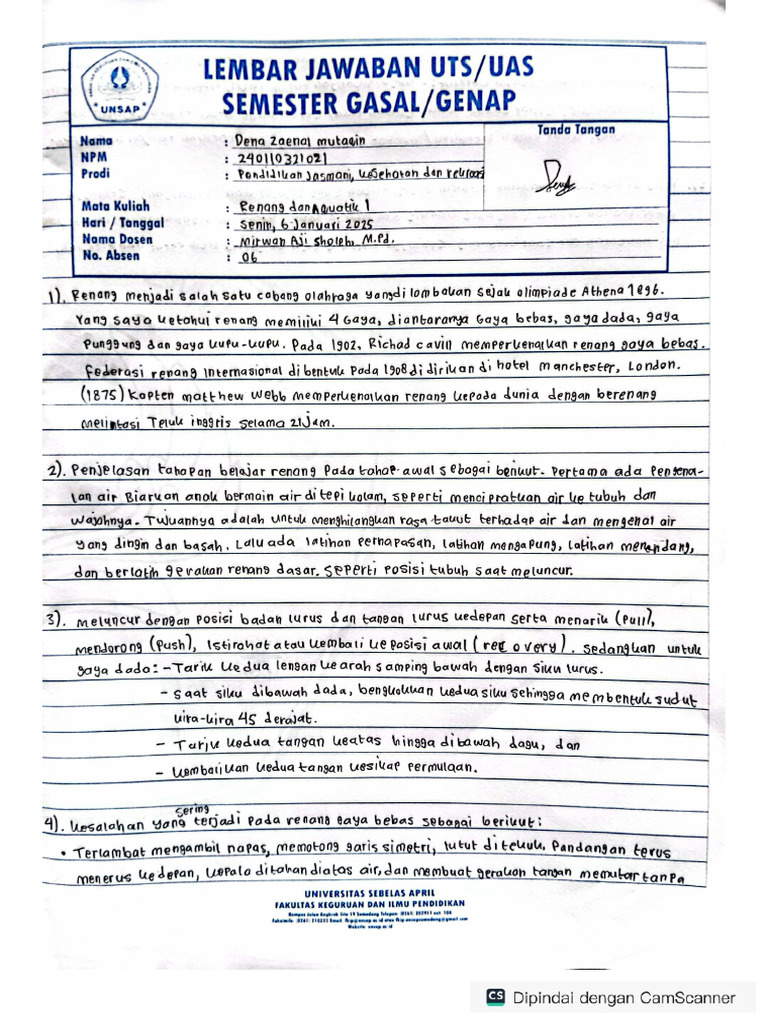 LEMBAR JAWABAN UTS/UAS
SEMESTER GASAL/GENAP
UNSAP
Nama : Dena Zaenal mutaqin
Tanda Tangan
NPM : 240110321021
Prodi : Pendidikan Jasmani, Kesehatan dan rekreasi
Mata Kuliah : Renang dan Aquatik 1
Hari / Tanggal : Senin, 6 Januari 2025
Nama Dosen : Mirwan Aji Sholeh, M.Pd.
No. Absen : 06
1). Renang menjadi salah satu cabang olahraga yang di lombakan sejak olimpiade Athena 1896.
Yang saya ketahui renang memiliki 4 Gaya, diantaranya Gaya bebas, gaya dada, gaya
Punggung dan gaya kupu-kupu. Pada 1902, Richad cavin memperkenalkan renang gaya bebas.
Federasi renang Internasional di bentuk pada 1908 di dirikan di hotel manchester, London.
(1875) Kapten matthew webb memperkenalkan renang kepada dunia dengan berenang
melintasi Teluk inggris selama 21 jam.
2). Penjelasan tahapan belajar renang Pada tahap awal sebagai berikut. Pertama ada Pengena-
lan air Biarkan anak bermain air di tepi kolam, seperti mencipratkan air ke tubuh dan
wajahnya. Tujuannya adalah untuk menghilangkan rasa takut terhadap air dan mengenal air
yang dingin dan basah. Lalu ada latihan pernapasan, latihan mengapung, latihan menendang,
dan berlatih gerakan renang dasar. seperti posisi tubuh saat meluncur.
3). Meluncur dengan posisi badan lurus dan tangan lurus kedepan serta menarik (Pull),
mendorong (Push), Istirahat atau kembali ke posisi awal (rec overy). Sedangkan untuk
gaya dada: - Tarik kedua lengan kearah samping bawah dengan siku lurus.
- saat siku dibawah dada, bengkokkan kedua siku sehingga membentuk sudut
kira-kira 45 derajat.
- Tarik kedua tangan keatas hingga dibawah dagu, dan
- kembalikan kedua tangan kesikap permulaan.
4). Kesalahan yang sering terjadi pada renang gaya bebas sebagai berikut:
• Terlambat mengambil napas, memotong garis simetri, lutut di tekuk. Pandangan terus
menerus kedepan, kepala ditahan diatas air, dan membuat gerakan tangan memutar tanpa
UNIVERSITAS SEBELAS APRIL
FAKULTAS KEGURUAN DAN ILMU PENDIDIKAN
Website: unsap.ac.id
CS Dipindai dengan CamScanner